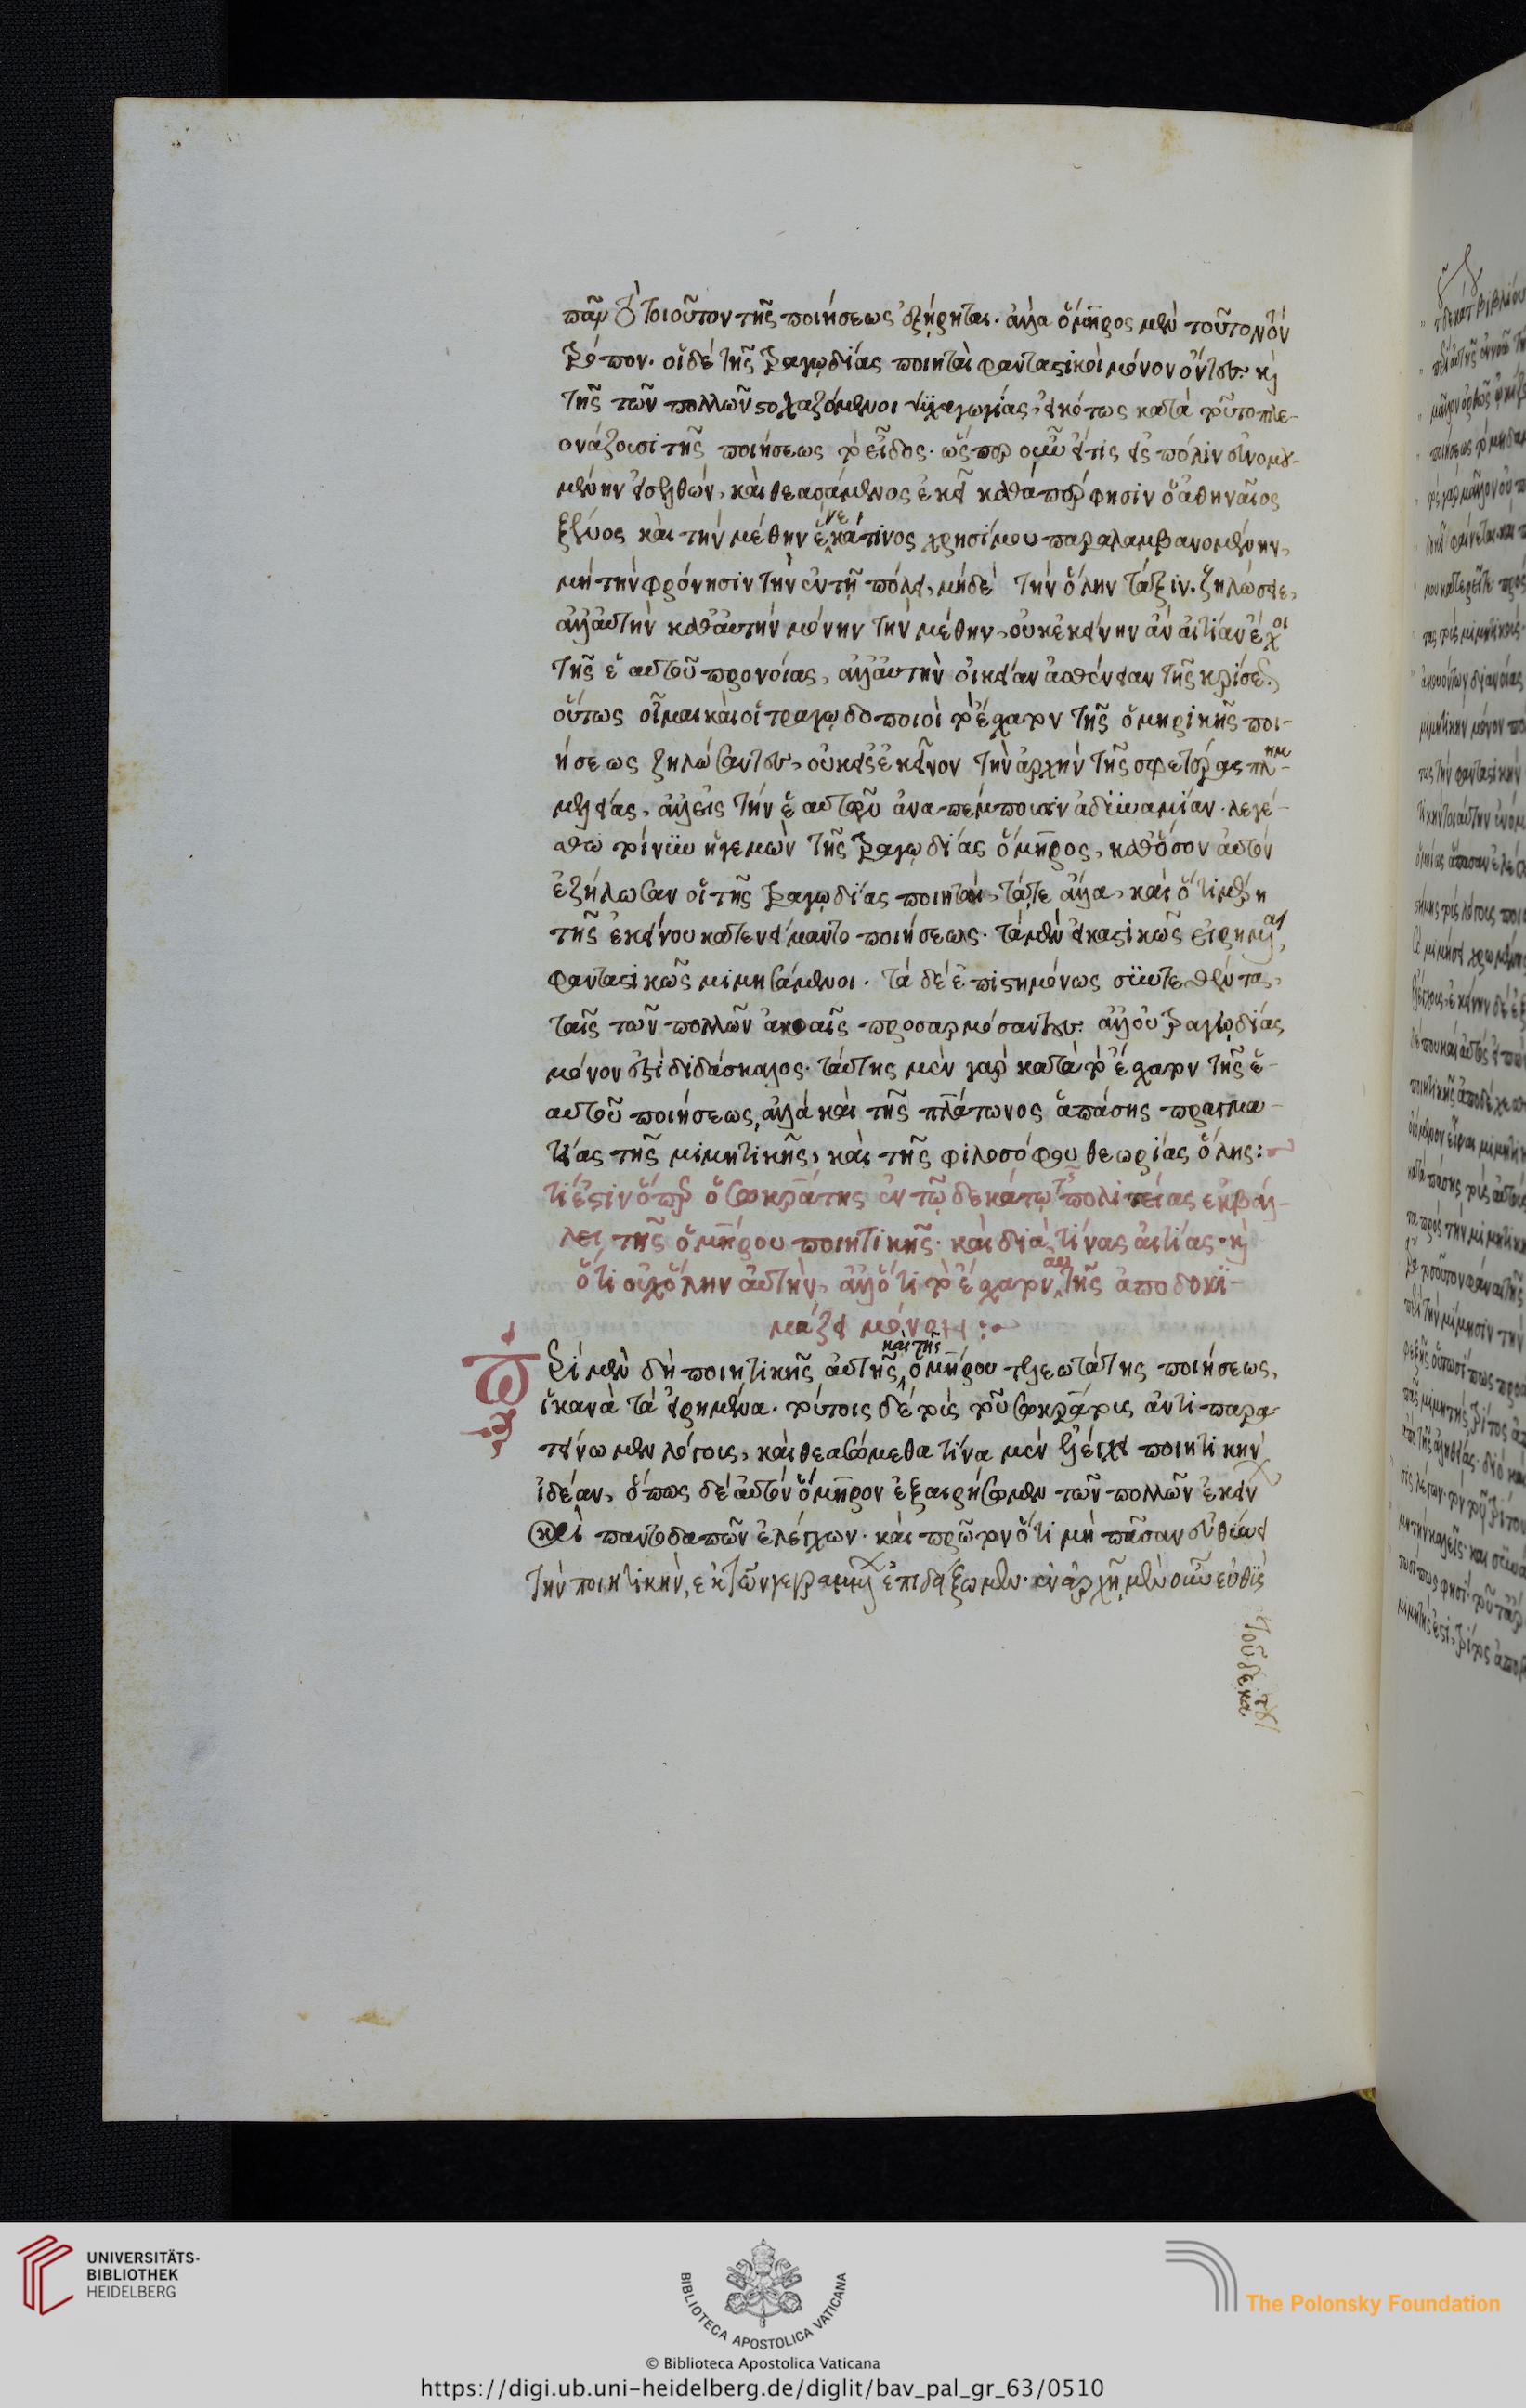 πᾶν τὸ τοιοῦτον τῆς ποιήσεως ἐξήρηται. ἀλλ' ὅμηρος μὲν τοῦτον τὸν
τρόπον. οἱ δὲ τῆς τραγῳδίας ποιηταὶ φανταστικοὶ μόνον ὄντες. καὶ
τῆς τῶν πολλῶν στοχαζόμενοι ψυχαγωγίας, εἰκότως κατὰ τοῦτο πλε-
ονάζουσι τῆς ποιήσεως τὸ εἶδος. ὥσπερ οὖν εἴτις εἰς πόλιν εὐνομου-
μένην εἰσελθών, καὶ θεασάμενος ἐκεῖ καθάπερ φησὶν ὁ ἀθηναῖος
ξένος καὶ τὴν μέθην ἕνεκά τινος χρησίμου παραλαμβανομένην,
μὴ τὴν φρόνησιν τὴν ἐν τῇ πόλει, μηδὲ τὴν ὅλην τάξιν ζηλώσειε,
ἀλλ' αὐτὴν καθ' αὑτὴν μόνην τὴν μέθην, οὐκ ἐκείνην ἂν αἰτίαν ἔχοι
τῆς ἑαυτοῦ προνοίας, ἀλλ' αὐτὴν οἰκείαν ἀσθένειαν τῆς κρίσεως,
οὕτως οἶμαι καὶ οἱ τραγῳδοποιοὶ τὸ ἔσχατον τῆς ὁμηρικῆς ποι-
ήσεως ζηλώσαντες, οὐκ εἰς ἐκεῖνον τὴν ἀρχὴν τῆς σφετέρας πλημ-
μελείας, ἀλλ' εἰς τὴν ἑαυτοῦ ἀναπέμπουσιν ἀδυναμίαν. λεγέ-
σθω τοίνυν ἡγεμὼν τῆς τραγῳδίας ὅμηρος, καθ' ὅσον αὐτὸν
ἐζήλωσαν οἱ τῆς τραγῳδίας ποιηταὶ, τά τε ἄλλα, καὶ ὅτι μέρη
τῆς ἐκείνου κατενείμαντο ποιήσεως. τὰ μὲν εἰκαστικῶς εἰρημένα,
φανταστικῶς μιμησάμενοι. τὰ δὲ ἐπιστημόνως συντεθέντα,
ταῖς τῶν πολλῶν ἀκοαῖς προσαρμόσαντες. ἀλλ' οὐ τραγῳδίας
μόνον ἐστὶ διδάσκαλος. ταύτης μὲν γὰρ κατὰ τὸ ἔσχατον τῆς ἑ-
αυτοῦ ποιήσεως, ἀλλὰ καὶ τῆς πλάτωνος ἁπάσης πραγμα-
τείας τῆς μιμητικῆς, καὶ τῆς φιλοσόφου θεωρίας ὅλης:
τί ἐστιν ὅπερ ὁ σωκράτης ἐν τῷ δεκάτῳ τῆς πολιτείας ἐκβάλ-
λει τῆς ὁμήρου ποιητικῆς. καὶ διὰ τίνας αἰτίας. καὶ
ὅτι οὐχ ὅλην αὐτὴν, ἀλλ' ὅτι τὸ ἔσχατον αὐτῆς ἀποδοκι-
μάζει μόνον:
Περὶ μὲν δὴ ποιητικῆς αὐτῆς, καὶ τῆς ὁμήρου τελεωτάτης ποιήσεως,
ἱκανὰ τὰ εἰρημένα. τούτοις δὲ τοῖς τοῦ σωκράτους ἀντιπαρα
τείνωμεν λόγοις, καὶ θεασώμεθα τίνα μὲν ἐλέγχει ποιητικὴν
ἰδέαν, ὅπως δὲ αὐτὸν ὅμηρον ἐξαιρήσομεν τῶν πολλῶν ἐκείν
καὶ παντοδαπῶν ἐλέγχων. καὶ πρῶτον ὅτι μὴ πᾶσαν εὐθύνει
τὴν ποιητικὴν, ἐκ τῶν γεγραμμένων ἐπιδείξωμεν. ἐν ἀρχῇ μὲν οὖν εὐθὺς
τοῦ δεκά
UNIVERSITÄTS-
BIBLIOTHEK
HEIDELBERG
BIBLIOTECA APOSTOLICA VATICANA
© Biblioteca Apostolica Vaticana
The Polonsky Foundation
https://digi.ub.uni-heidelberg.de/diglit/bav_pal_gr_63/0510